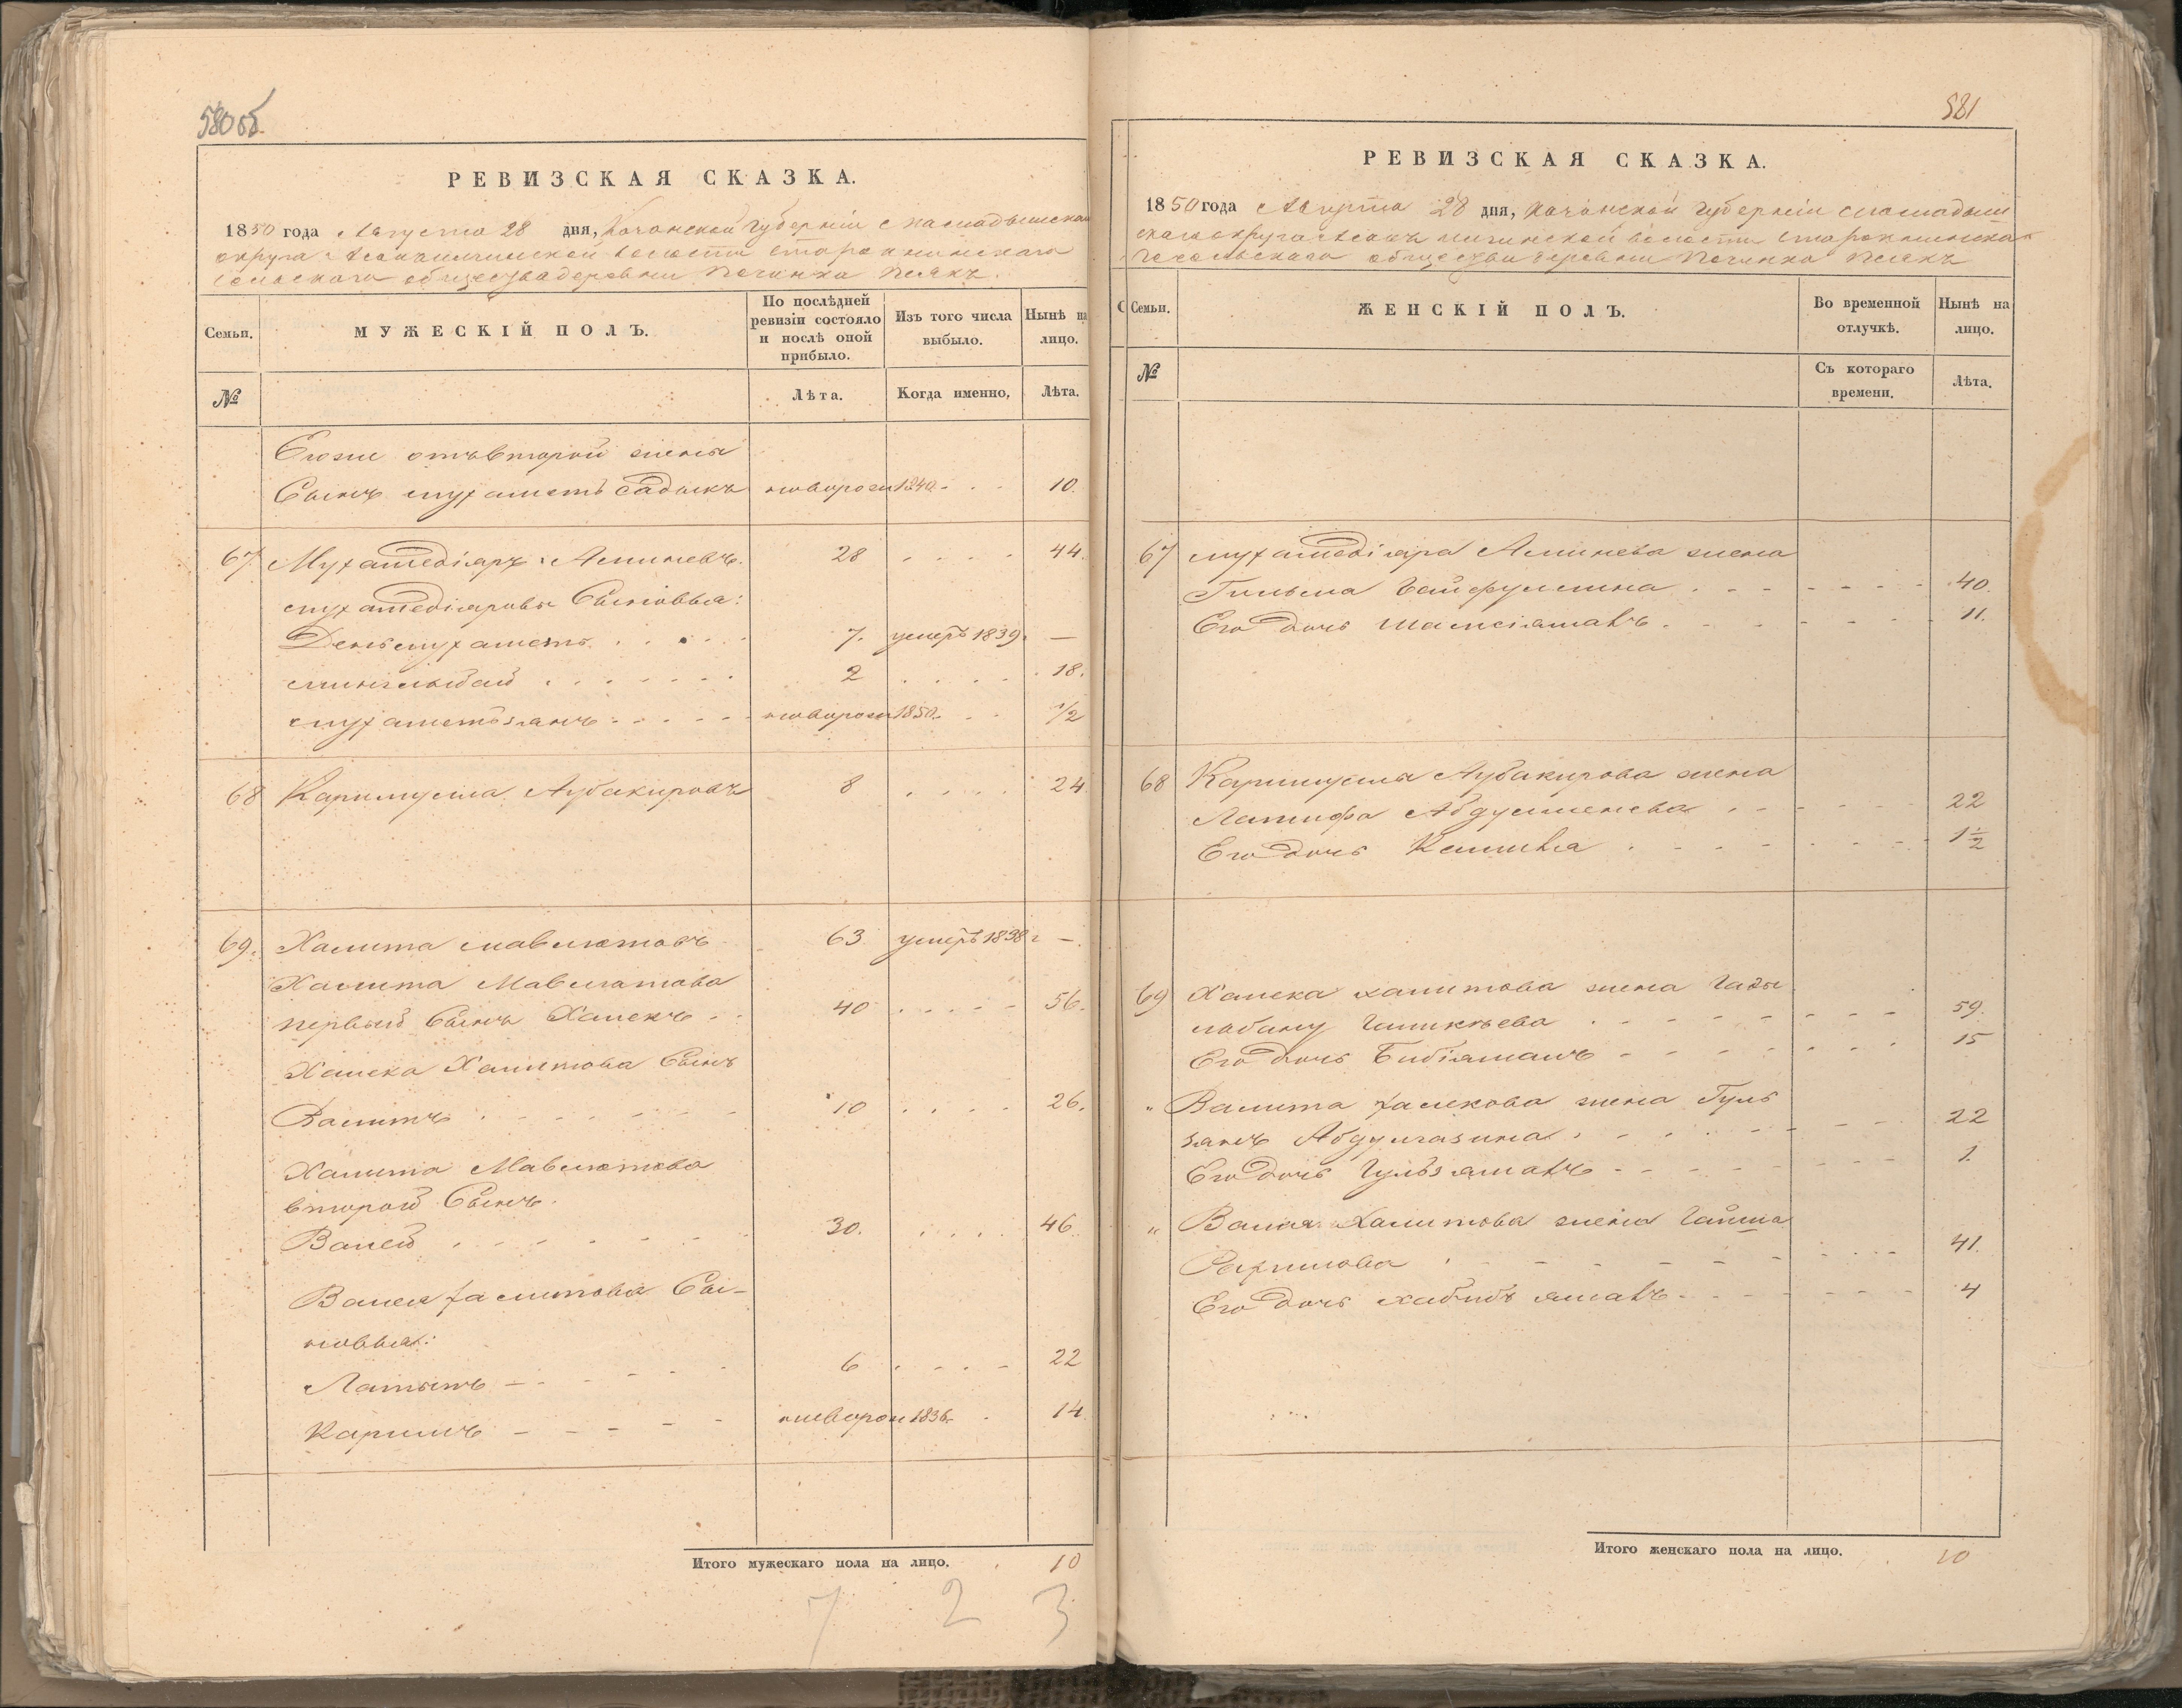 580 об.
РЕВИЗСКАЯ СКАЗКА.
1850 года Августа 28 дня, Казанской Губерніи Мамадышскаго
округа волости Старокнинскаго
Сельскаго общества деревни Починка
Семьи.
МУЖЕСКІЙ ПОЛЪ.
По послѣдней ревизіи состояло и послѣ оной прибыло.
Изъ того числа выбыло.
Нынѣ на лицо.
№
Лѣта.
Когда именно,
Лѣта.
Егоже отъ второй жены
Сынъ Мухаметъ Садыкъ новорож 1840 10.
67 Мухамедіаръ Аминевъ. 28 44.
Мухамедіаровы Сыновья:
Деньмухаметь 7. умеръ 1839. —
Минлибай 2 18.
Мухаметзянъ новорож 1850. 1/2
68 Каримулла Аубакировъ 8 24
69. Халита Мавлютовъ 63. умеръ 1838 г —.
Халита Мавлютова
первый Сынъ Халекъ 40 56.
Халека Халитова Сынъ
Валитъ 10 26.
Халита Мавлютова
второй Сынъ.
Валей 30. 46.
Валея Халитова Сы-
новья:
Латыпъ 6 22
Каримъ новорож 1836. 14.
Итого мужескаго пола на лицо. 10
7 2 3
581
РЕВИЗСКАЯ СКАЗКА.
1850 года Августа 28 дня, Казанской Губерніи Мамадыш
скаго округа волости Старокнинска
го Сельскаго общества деревни Починка
Семьи.
ЖЕНСКІЙ ПОЛЪ.
Во временной отлучкѣ.
Нынѣ на лицо.
№
Съ котораго времени.
Лѣта.
67 Мухамедіара Аминева жена
Гильма Сайфуллина 40.
Его дочь 11.
68 Каримуллы Аубакирова жена
Латифа 22
Его дочь 1 1/2
69 Халека Халитова жена Гады
лабану 59.
Его дочь Бибіямалъ 15
" Валита Халекова жена Гуль
занъ Абдулгазина 22
Его дочь 1.
" Валея Халитова жена Гайша
Рахимова 41.
Его дочь 4
Итого женскаго пола на лицо. 10